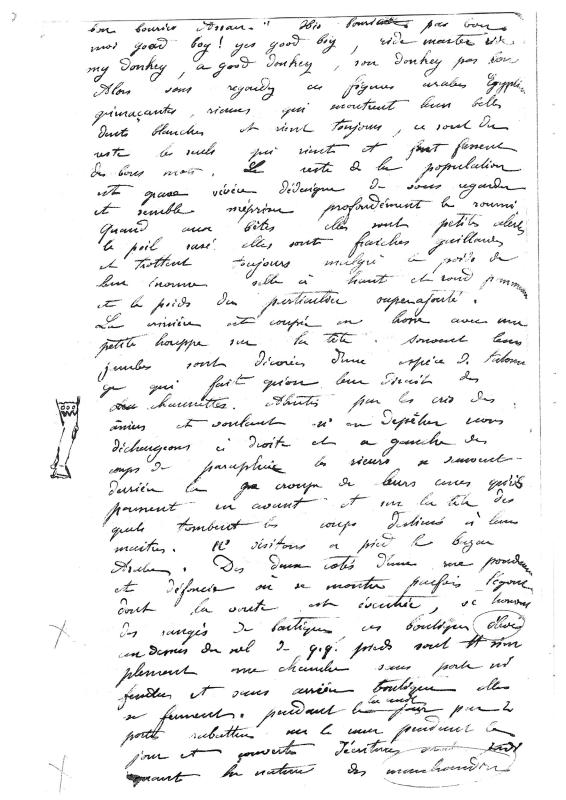 bon bourico Assan." Bis bourico pas bon
moi good boy! yes good boy, ride master ride
my donkey, a good donkey, son donkey pas bon
Alors vous regardez ces figures arabes Egyptien
grimaçantes, rieuses qui montrent leurs belles
dents blanches et rient toujours, ce sont du
reste les seuls qui rient et font fassent
des bons mots. Le reste de la population
est grave sévère dédaigne de vous regarder
et semble mépriser profondément le roumi
Quand aux bêtes elles sont petites alertes
le poil rasé elles sont fraîches gaillardes
et trottent toujours malgré le poids de
leur énorme selle à haut et rond pommeau
et le poids du particulier superajouté.
La crinière est coupée en brosse avec une
petite houppe sur la tête. Souvent leurs
jambes sont décorées d'une espèce de tatouage
ce qui fait qu'on leur dirait des
des chaussettes. Abrutis par les cris des
âniers et voulant n' en dépêtrer nous
déchargeons à droite et a gauche des
coups de parapluie les rieurs se sauvent
derrière la croupe de leurs ânes qu'ils
poussent en avant et sur la tête des
quels tombent les coups destinés à leurs
maîtres. Ns visitons a pied le bazar
Arabe. Des deux cotés d'une rue
et défoncée où se montre parfois l'égout
dont la voute est écroulée, se trouvent
des rangés de boutiques ces boutiques élevées
au dessus du sol de q.q. pieds sont sim
plement une chambre sans porte ni
fenêtres et sans arrière boutique elles
se ferment. pendant la nuit par 2
portes rabattues sur le mur pendant le
jour et couvertes d'écritures
quant la nature des marchandises